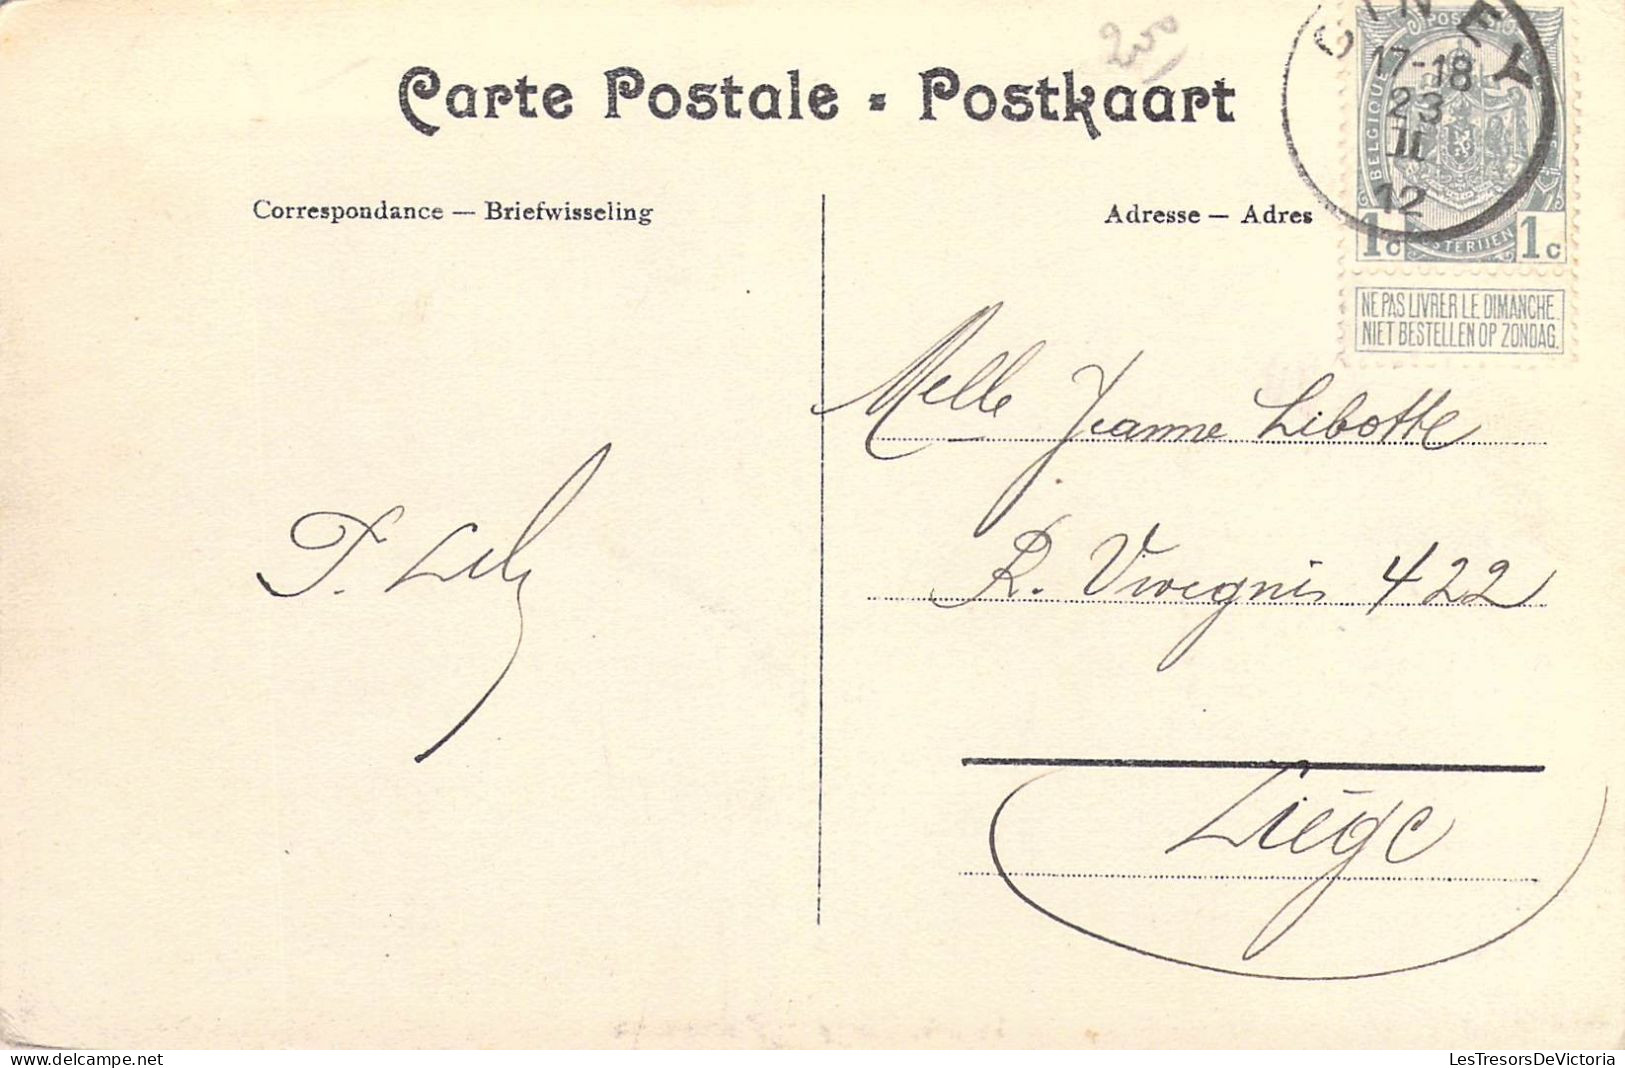 Carte Postale - Postkaart
Correspondance — Briefwisseling
Adresse — Adres
17-18
23
II
12
BELGIQUE
1c 1c
NE PAS LIVRER LE DIMANCHE.
NIET BESTELLEN OP ZONDAG.
Melle Jeanne Libotte
R. Vivegnis 422
Liège
LesTresorsDeVictoria
lestresorsdevictoria.com